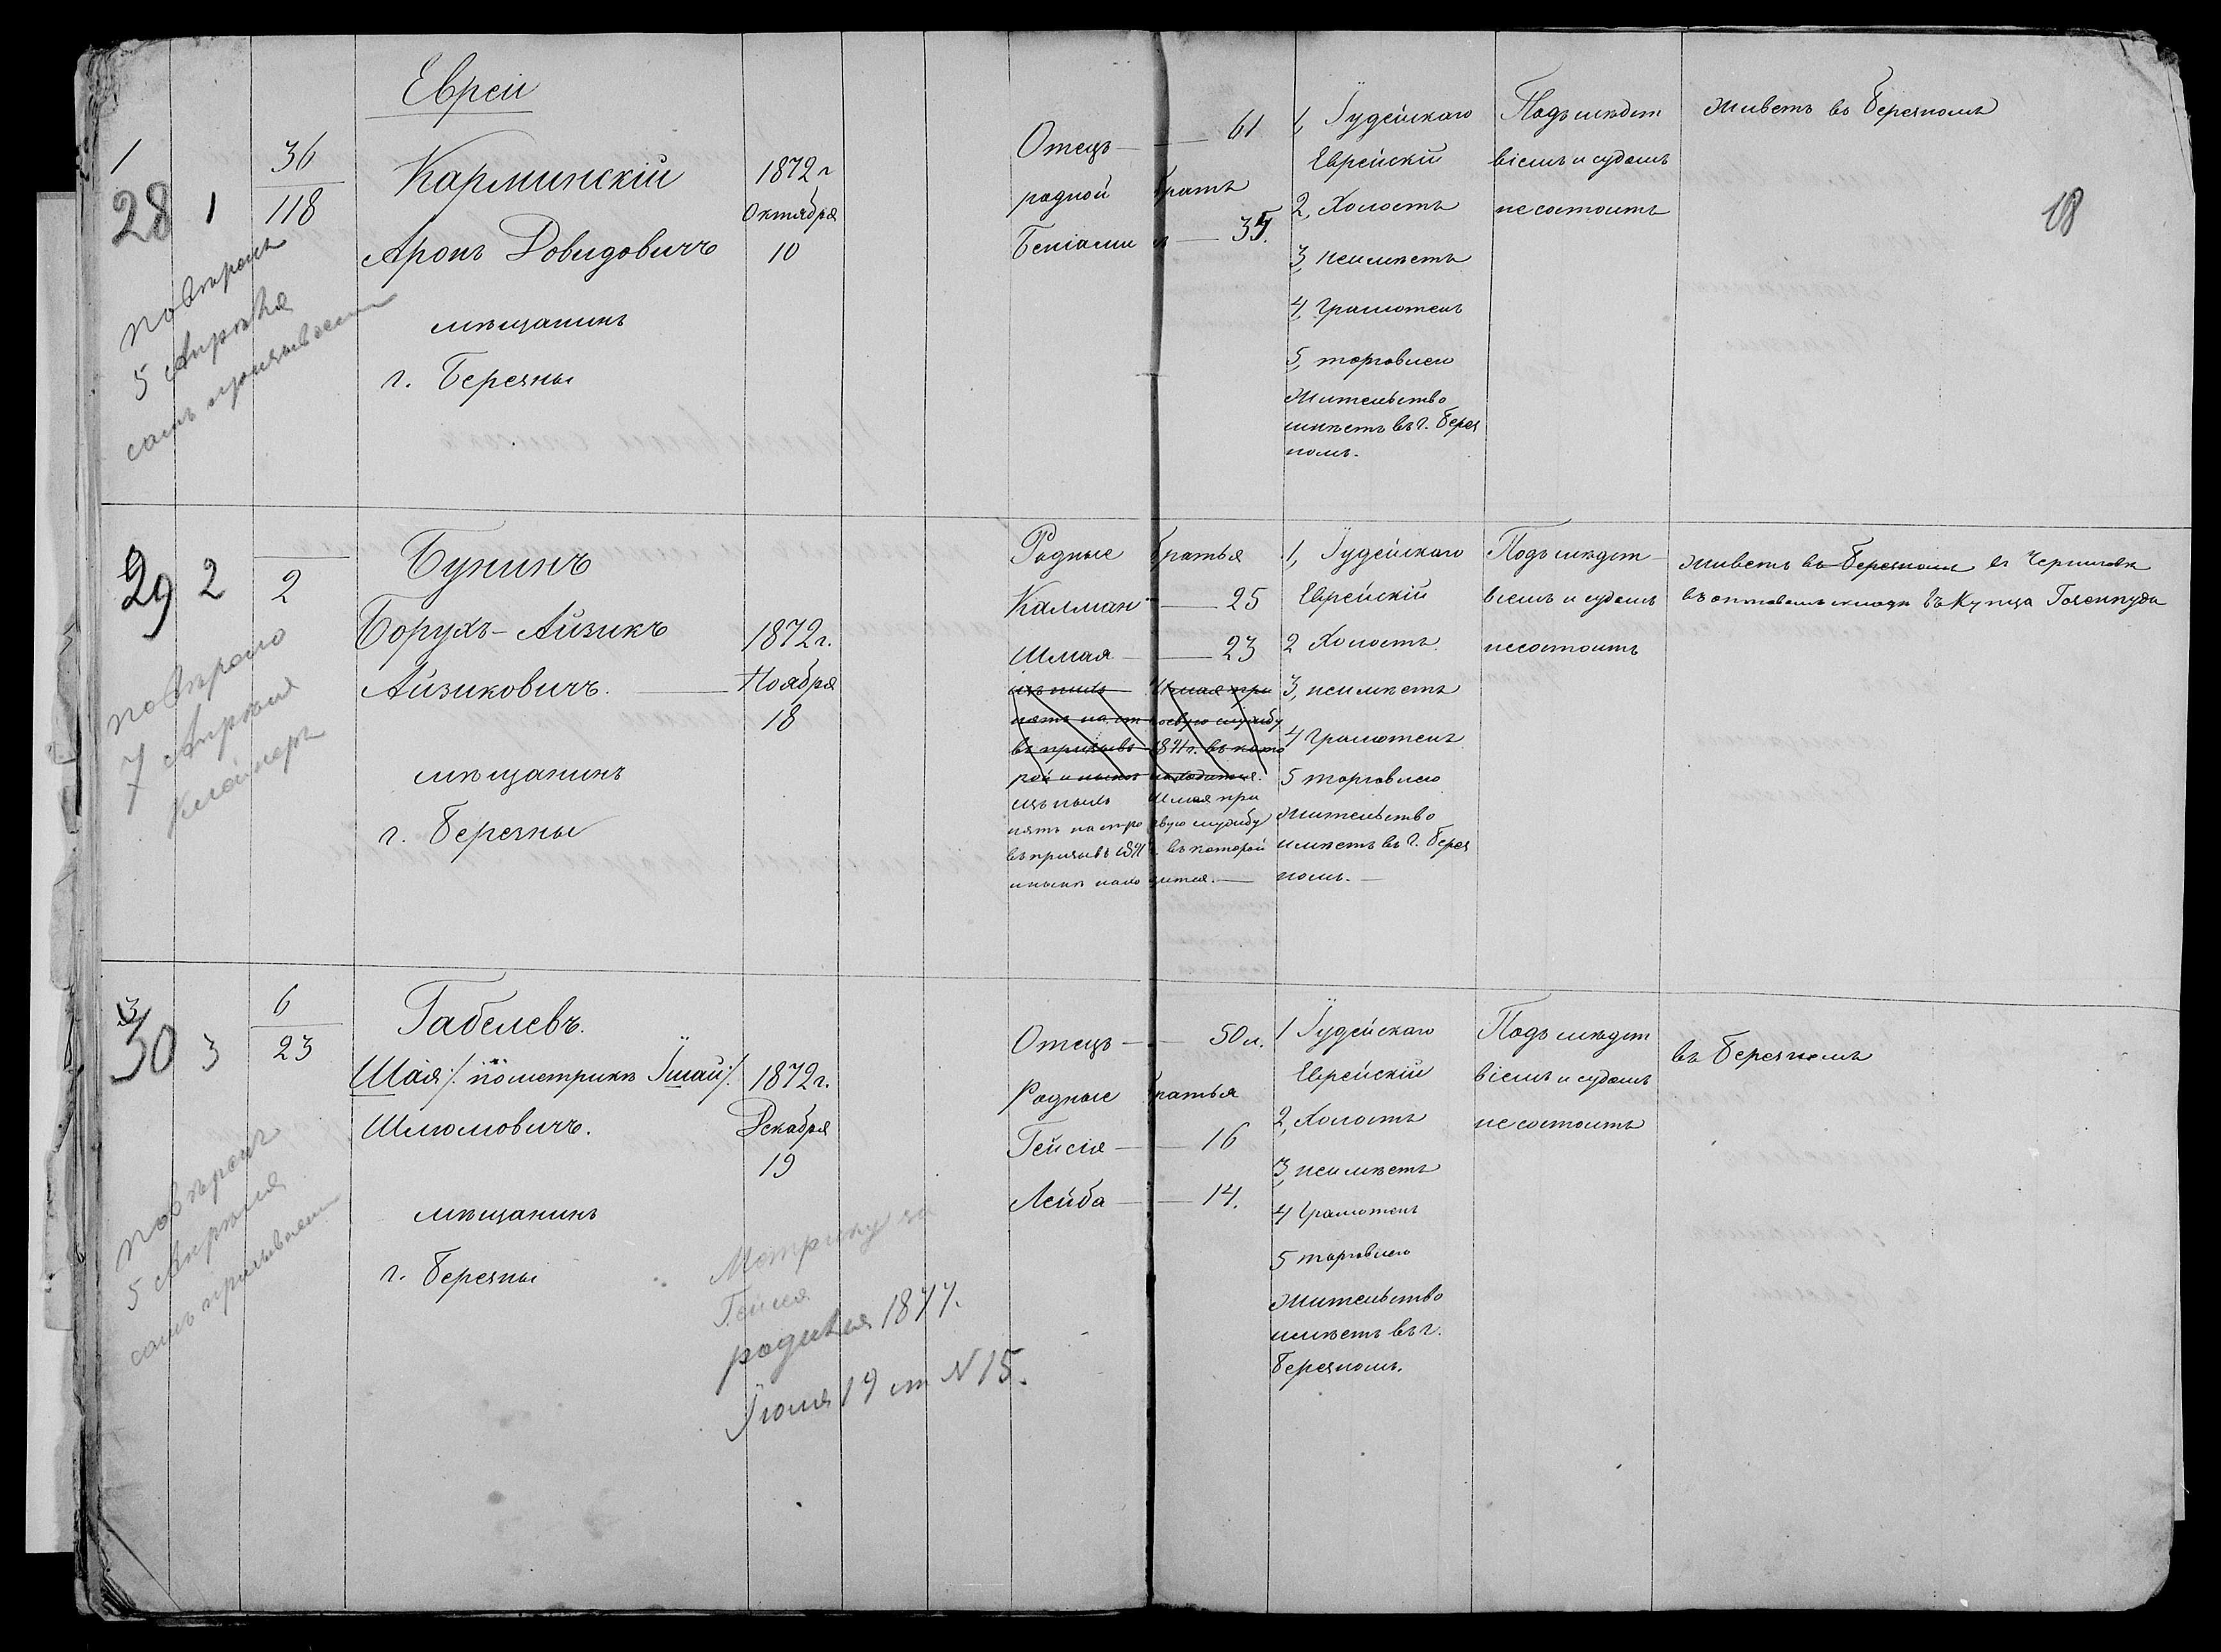 Евреи
18
1
28
1
36
118
Карминскій
Аронъ Довидовичъ
мѣщанинъ
г. Березны
1872 г
Октября
10
Отецъ — 61
родной братъ
Беніамин — 35.
1, Іудейскаго
Еврейскій
2, Холостъ
3, неимѣетъ
4, Грамотенъ
5, торговлею
Жительство
имѣетъ въ г. Берез
номъ.
Подъ слѣдст
віемъ и судомъ
не состоитъ
Живетъ въ Березномъ
повѣренъ
5 Апрѣля
самъ призываем
29
2
2
Бунинъ
Борухъ-Айзикъ
Айзиковичъ.
мѣщанинъ
г. Березны
1872 г.
Ноября
18
Родные братья
Калман — 25
Шмая — 23
изъ нихъ Шмая при
нятъ на строевую службу
въ призывъ 1891 г. въ кото
рой и нынѣ находится.
изъ нихъ Шмая при
нятъ на строевую службу
въ призывъ 1891 г. въ которой
и нынѣ находится. —
1, Іудейскаго
Еврейскій
2 Холостъ
3, неимѣетъ
4 Грамотенъ
5 торговлею
Жительство
имѣетъ въ г. Берез
номъ. —
Подъ слѣдст
віемъ и судомъ
несостоитъ
Живетъ въ Березномъ въ Черниговѣ
въ оптовомъ складѣ въ Купца
повѣрено
7 Апрѣля
30
3
6
23
Габелевъ.
Шая /: по метрикѣ Ишай :/
Шлиомовичъ.
мѣщанинъ
г. Березны
1872 г.
Декабря
19
Отецъ — 50 л.
Родные братья
Гейсія — 16
Лейба — 14.
1 Іудейскаго
Еврейскій
2, Холостъ
3, неимѣетъ
4 Грамотенъ
5 торговлею
Жительство
имѣетъ въ г.
Березномъ.
Подъ слѣдст
віемъ и судомъ
не состоитъ
въ Березномъ
повѣренъ
5 Апрѣля
самъ призываем
Метрику за
родился 1877.
Іюля 19 ст N 15.